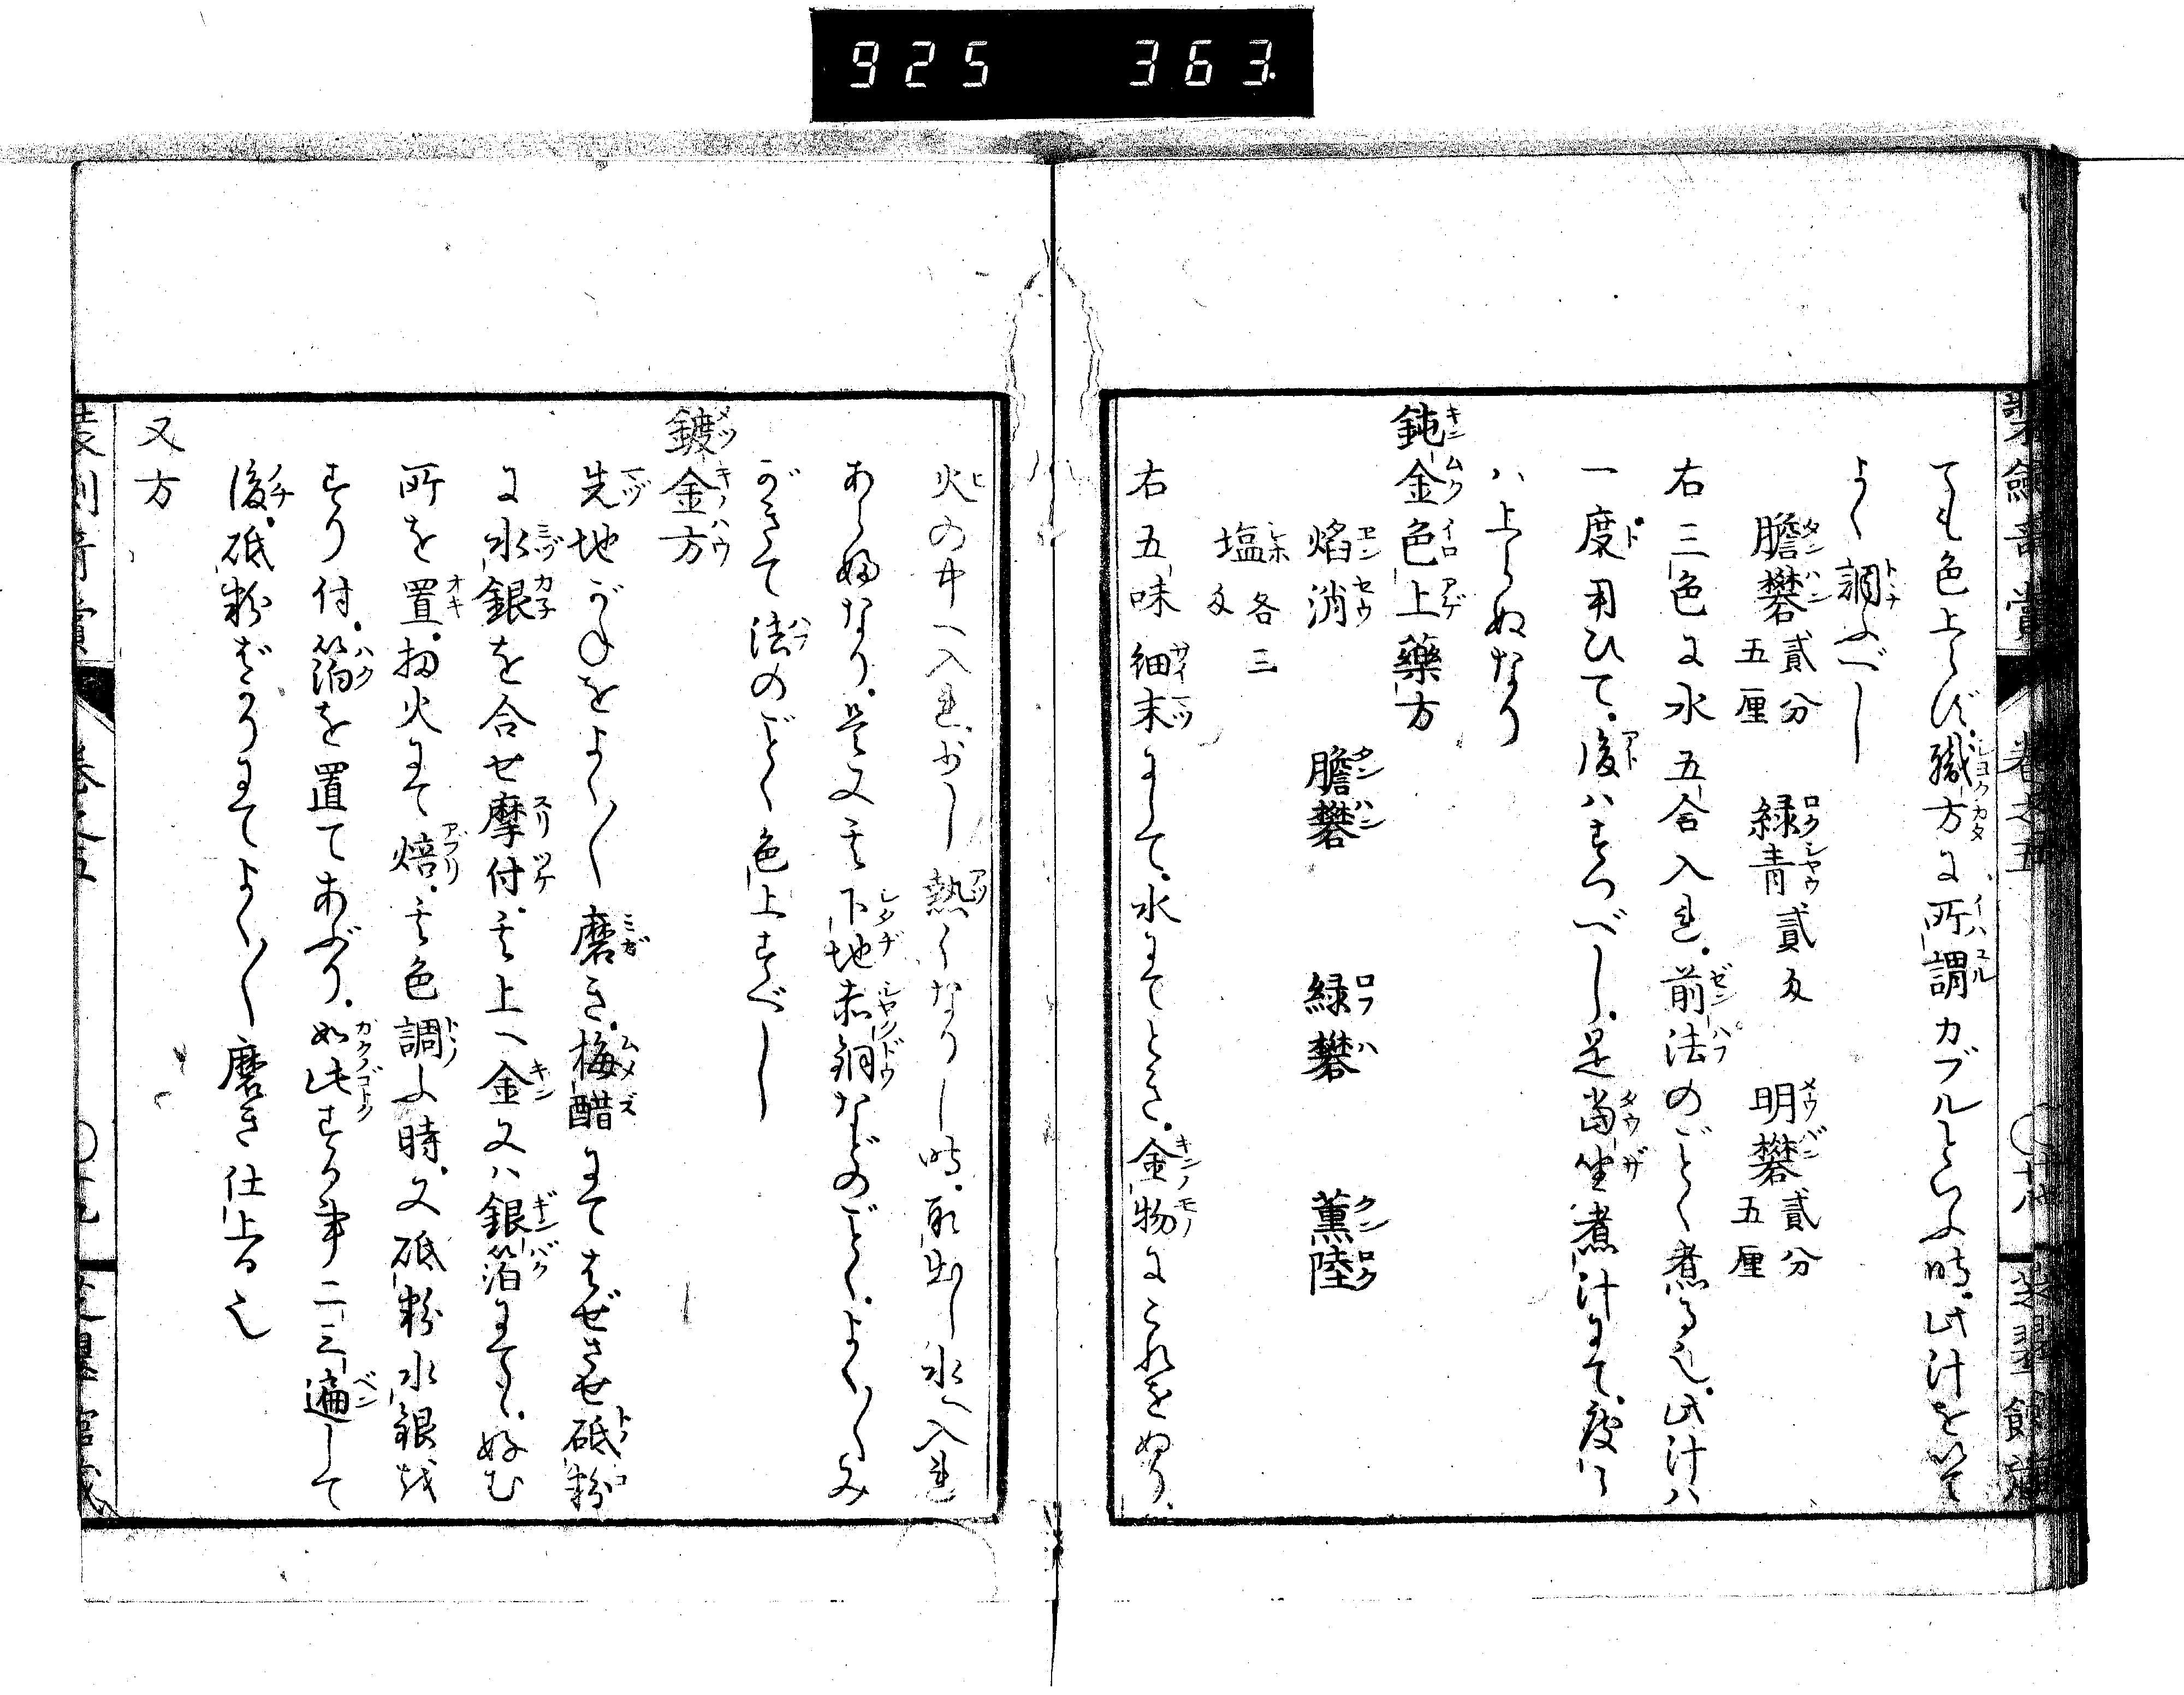 925 363
ても色上らバ、職方に所謂カブルといふ時、此汁を以て
よく調ふべし
膽礬 貳分五厘 緑青 貳匁 明礬 貳分五厘
右三色に水五合入れ、前法のごとく煮る也、此汁ハ
一度用ひて、後ハすつべし、是當坐煮汁にて、度々
ハ上らぬなり
鈍金色上藥方
焰消 膽礬 緑礬 薫陸
塩 各三匁
右五味細末にして、水にてとき、金物にこれをぬり、
火の中へ入れ、少し熱くなりし時、取出し水へ入れ
あらふなり、是又其下地赤銅などのごとく、よく〱み
がきて法のごとく色上すべし
鍍金方
先地がねをよく〱磨き、梅醋にてはぜさせ砥粉
に水銀を合せ摩付、其上へ金又ハ銀箔にても、好む
所を置、扨火にて焙、其色調ふ時、又砥粉水銀を
すり付、箔を置てあぶり、如此する事二三遍して
後、砥粉ばかりにてよく〱磨き仕上る也
又方